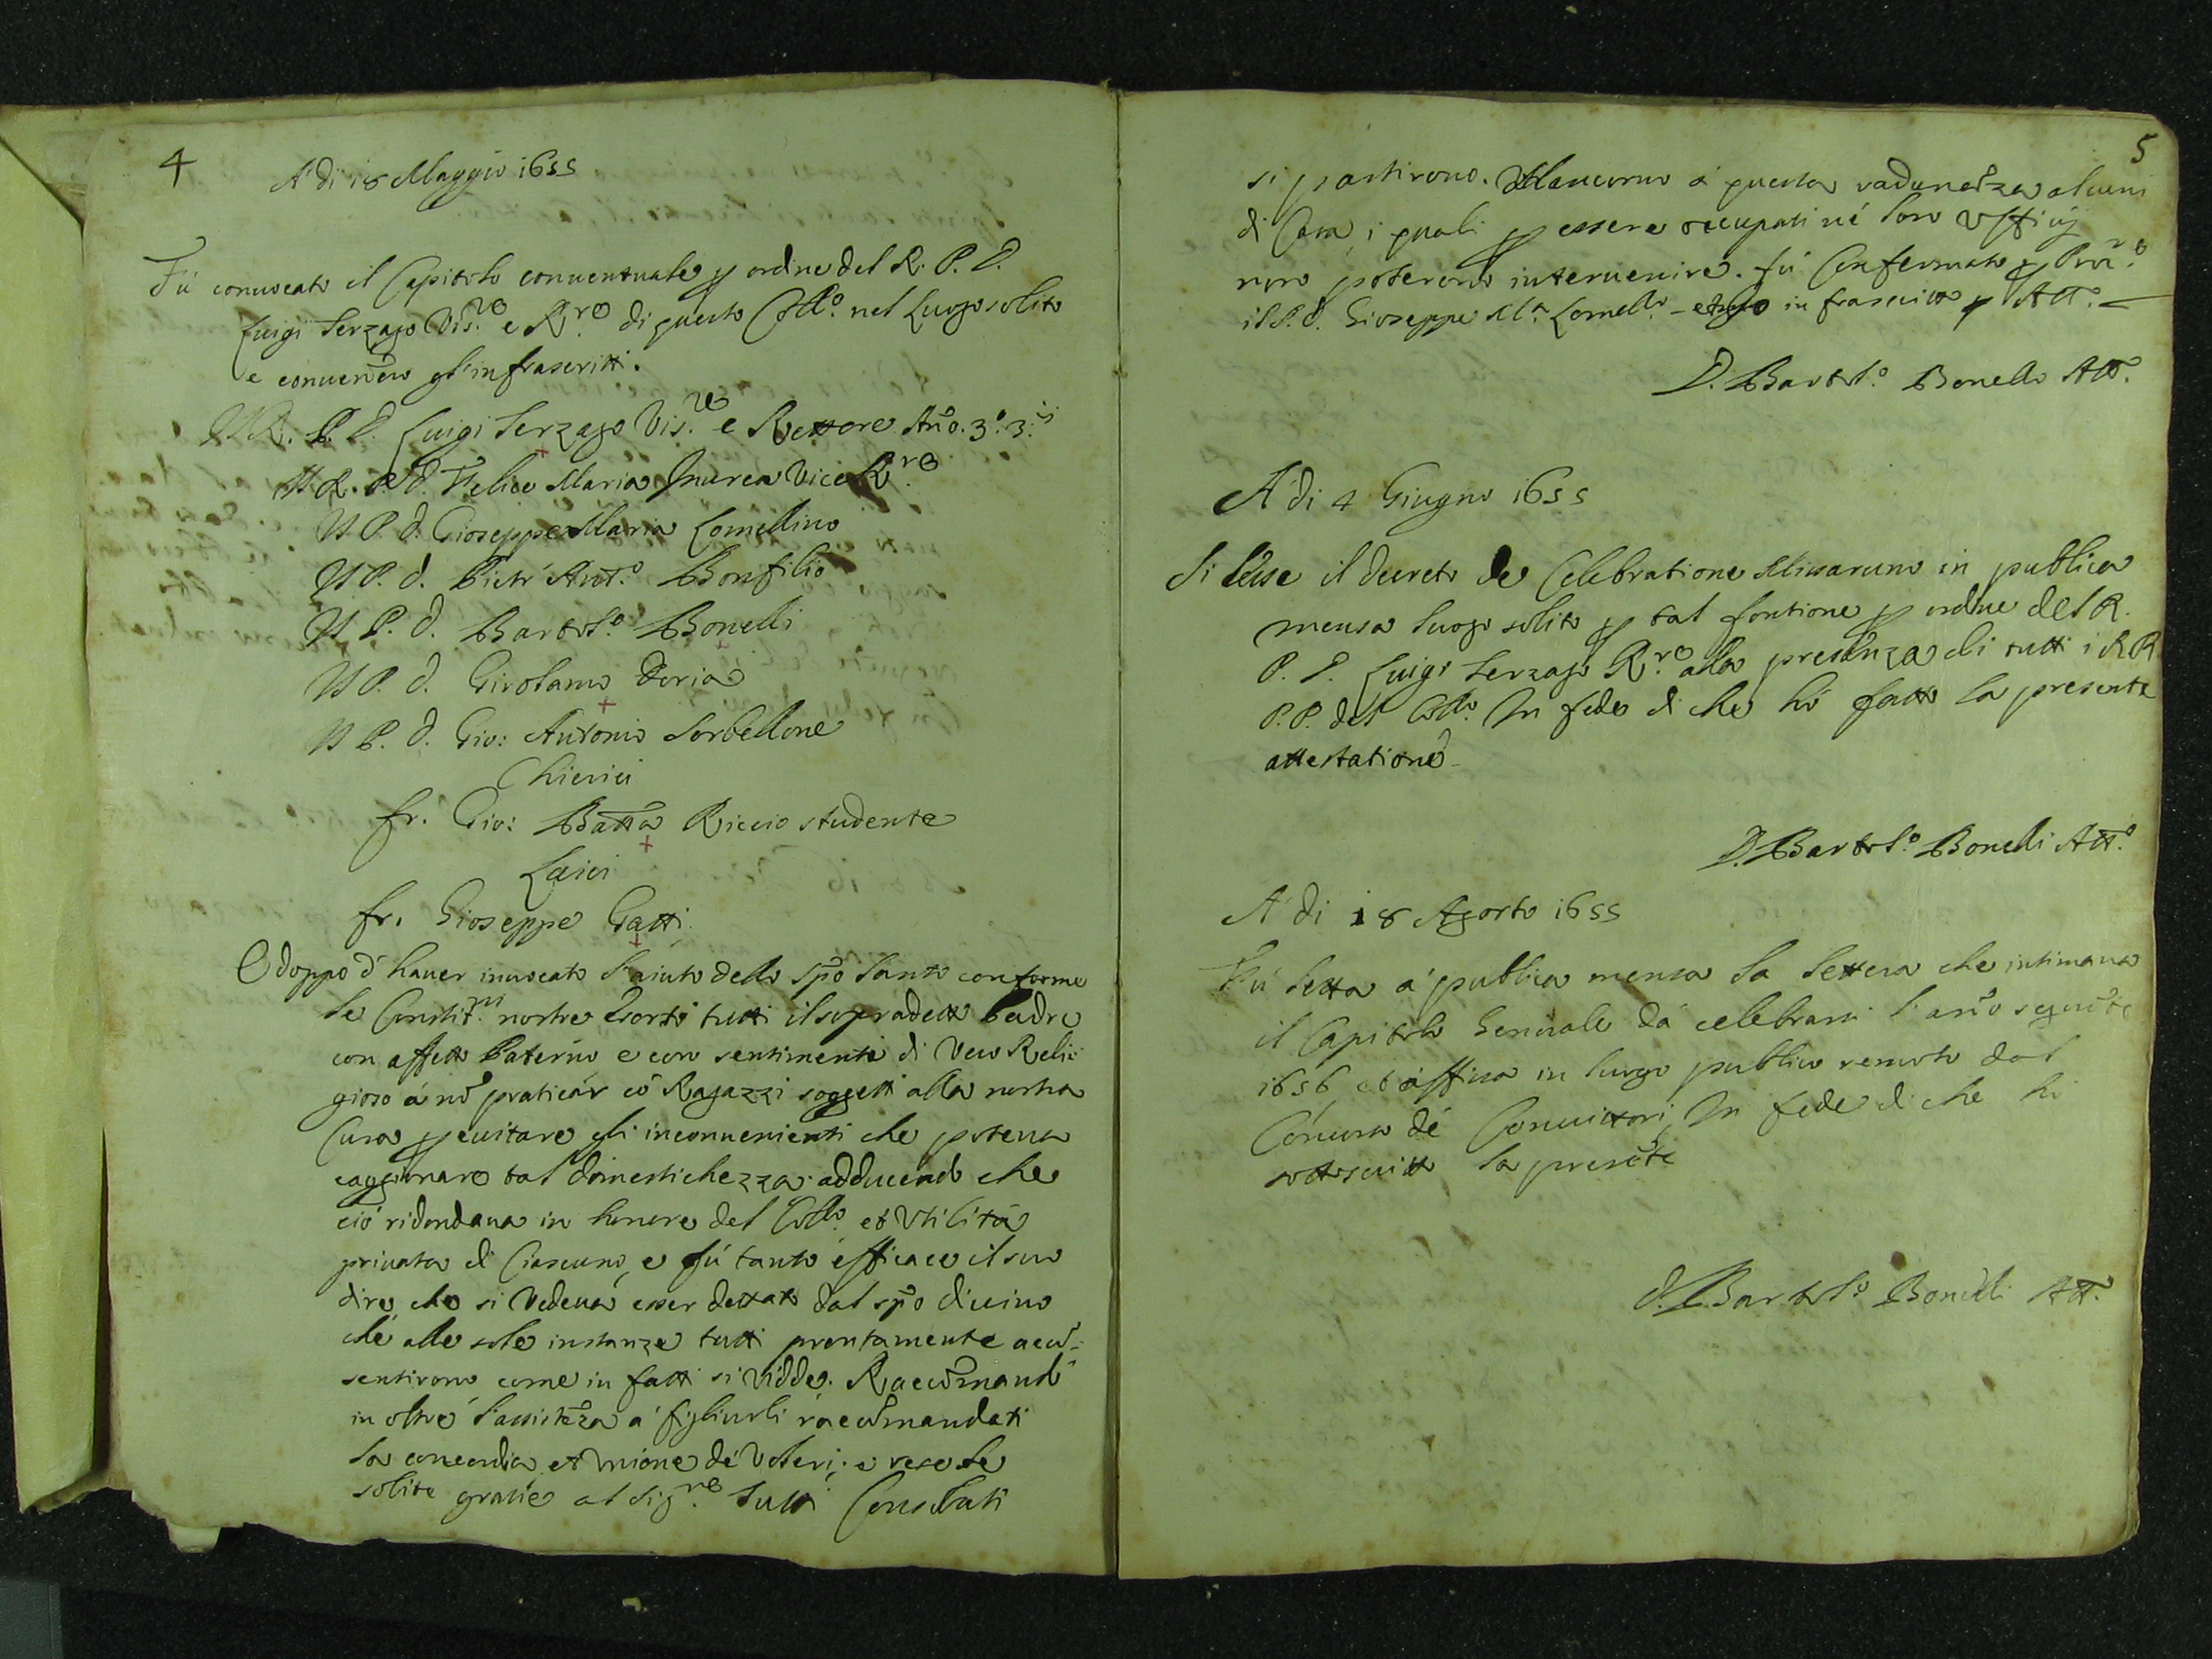 4
A' di 18 Maggio 1655
Fù conuocato il Capitolo conuentuale p ordne del R. P. D.
Luigi Serzago Vis.re e R.re di questo Coll.o nel Luogo solito
e conuenero gl'infrascritti.
Il R. P. D. Luigi Serzago Vis.re e Rettore Año. 3.o 3.ij
Il R. P. d. Felice Maria Inurea Vice R.re
Il P. d. Gioseppe Maria Lomellino
Il P. d. Pietr' Ant.o Bonfilio
Il P. d. Bartol.o Bonelli
Il P. d. Girolamo Doria
Il P. d. Gio: Antonio Sorbellone
Chierici
fr. Gio: Batta Riccio studente
Laici
fr. Gioseppe Gatti
E doppo d' hauer inuocato l'aiuto dello Spõ Santo conforme
le Constit.ni nostre Esortò tutti il sopradetto Padre
con affetto Paterno e con sentimenti di vero Relig
gioso à nõ praticàr cõ Ragazzi soggetti alla nostra
Cura p euitare gli inconuenienti che poteua
caggionare tal domestichezza. adducendo che
ciò ridondaua in honore del Coll.o et Vtilità
priuata di Ciascuno, e fù tanto efficace il suo
dire che si Vedeua esser dettato dal spõ diuino
chè alle sole instanze tutti prontamente acco-
sentirono come in fatti si vidde. Raccõmandò
in oltre l'assistẽza a' figliuoli raccõmandati
la concordia, et Vnione dè Voleri; e rese le
solite gratie al Sig.re tutti Consolati
5
si partirono. Mancorno à questa radunãza alcuni
di Casa, i quali p essere occupati nè loro Vffitij
non poterono interuenire. fù Confermato p Proc.re
il P. d. Gioseppe M.a Lomell.o - et Io infrascritto p Att.o
D. Bartol.o Bonello Att.o
A' di 4 Giugno 1655
Si lesse il decreto de Celebratione Missarum in publica
mensa luogo solito p tal fontione p ordne del R.
P. D. Luigi Serzago R.re alla presenza di tutti i RR.
P.P. del Coll.o In fede di che hò fatto la presente
attestatione
D. Bartol.o Bonelli Att.o
A' di 18 Agosto 1655
Fù letta a' publica mensa la lettera che intimaua
il Capitolo Generale dà celebrarsi l'año seguẽte
1656, et affissa in luogo publico remoto dal
Concorso dè Conuittori, In fede di che hò
sottoscritto la presẽte
d. Bartol.o Bonelli Att.o